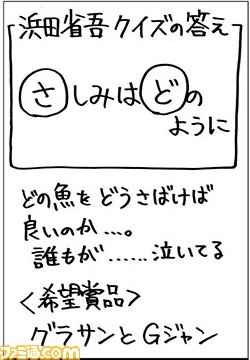 浜田省吾クイズの答え
さしみはどの
ように
どの魚をどうさばけば
良いのか…。
誰もが……泣いてる
<希望賞品>
グラサンとGジャン
ファミ通.com